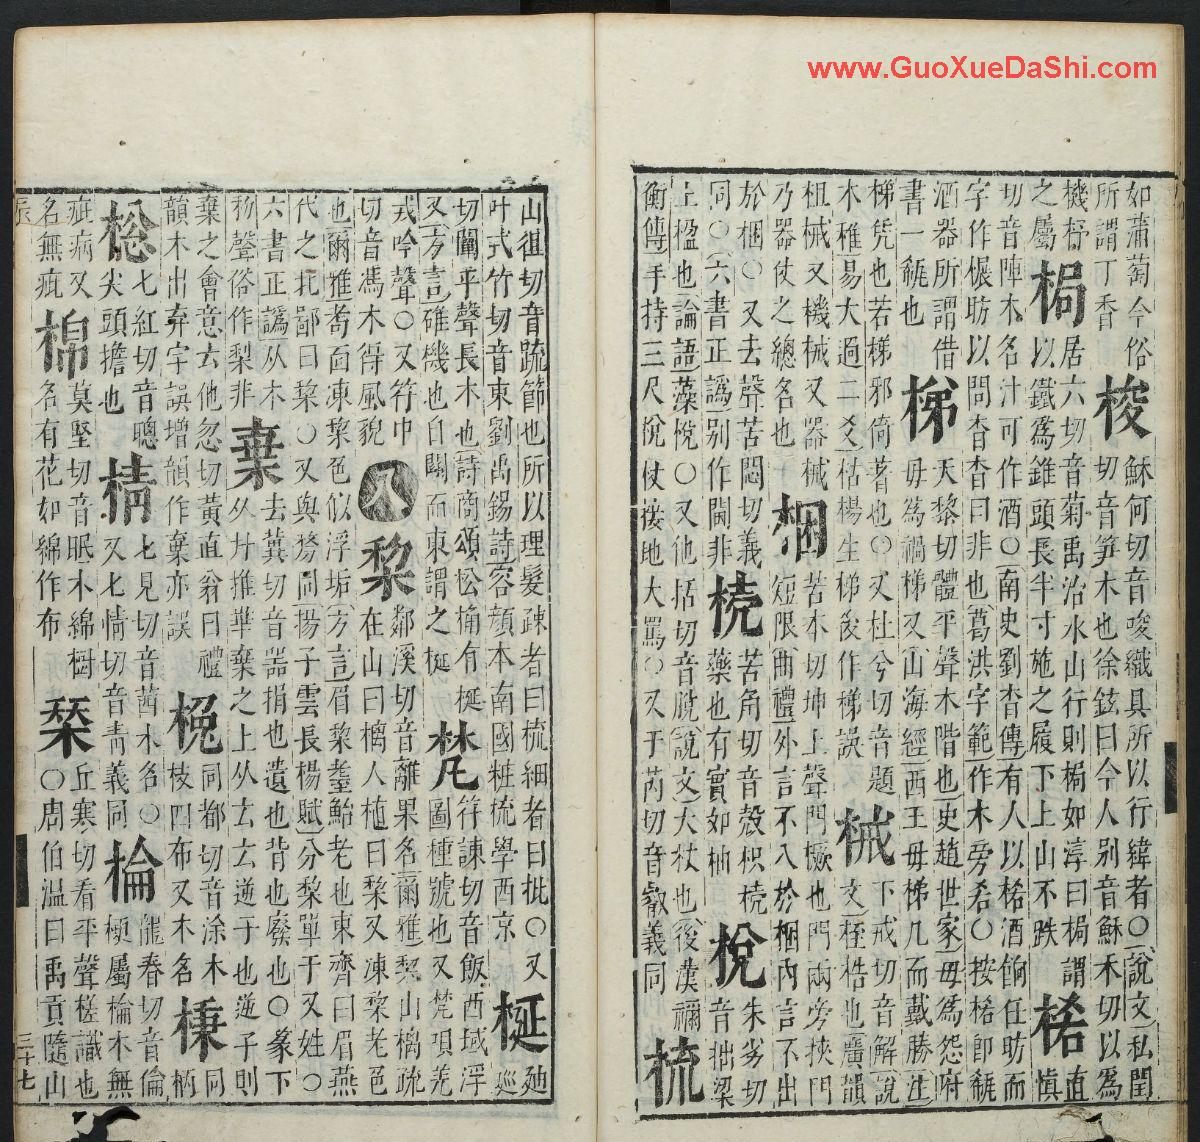 如蒲萄今俗
所謂丁香
梭
穌何切音唆織具所以行緯者○說文私閏
切音筍木也徐鉉曰今人別音穌禾切以爲
機杼
之屬
梮
居六切音菊禹治水山行則梮如淳曰梮謂
以鐵爲錐頭長半寸施之履下上山不跌
桸
直
愼
切音陣木名汁可作酒○南史劉杳傳有人以桸酒餉任昉而
字作榐昉以問杳杳曰非也葛洪字範作木旁希○按桸卽瓻
酒器所謂借
書一瓻也
梯
天黎切體平聲木階也史趙世家毋爲怨府
毋爲禍梯又山海經西王母梯几而戴勝註
梯凭也若梯邪倚著也○又杜兮切音題
木稚易大過二爻枯楊生梯俗作梯誤
械
下戒切音解說
文桎梏也廣韻
杻械又機械又器械
乃器仗之總名也
梱
苦本切坤上聲門橛也門兩旁挾門
短限曲禮外言不入於梱內言不出
於梱○又去聲苦悶切義
同○六書正譌別作閫非
苦角切音殼枳
藥也有實如柚
梲
朱劣切
音拙梁
上楹也論語藻梲○又他括切音脫說文大杖也後漢禰
衡傳手持三尺梲杖捶地大罵○又于芮切音叡義同
梳
山徂切音疏節也所以理髮疎者曰梳細者曰枇○又
叶式竹切音束劉禹錫詩容顏本南國粧梳學西京
梴
廸
巡
切闡平聲長木也詩商頌松桷有梴
又方言碓機也自關而東謂之梴
梵
符諫切音飯西域浮
圖種號也又梵項羌
戎吟聲○又符巾
切音馮木得風貌
八
棃
鄰溪切音離果名爾雅棃山樆疏
在山曰樆人植曰棃又凍棃老邑
也爾雅耈面凍棃色似浮垢方言眉棃耋鮐老也東齊曰眉燕
代之北鄙曰棃○又與剺同揚子雲長楊賦分棃單于又姓○
六書正譌从木
聲俗作梨非
棄
去冀切音器捐也遺也背也廢也○篆下
从廾推華棄之上从𠫓𠫓逆子也逆子則
棄之會意𠫓他忽切黃直翁曰禮
韻木出弃字誤增韻作棄亦誤
同都切音涂木
枝四布又木名
棅
同
柄
棇
七紅切音聰
尖頭擔也
棈
七見切音茜木名○
又七情切音靑義同
棆
龍春切音倫
梗屬棆木無
疵病又
名無疵
棉
莫堅切音眠木綿樹
名有花如綿作布
栞
丘寒切看平聲槎識也
○周伯溫曰禹貢隨山
辰
三十七
www.GuoXueDaShi.com